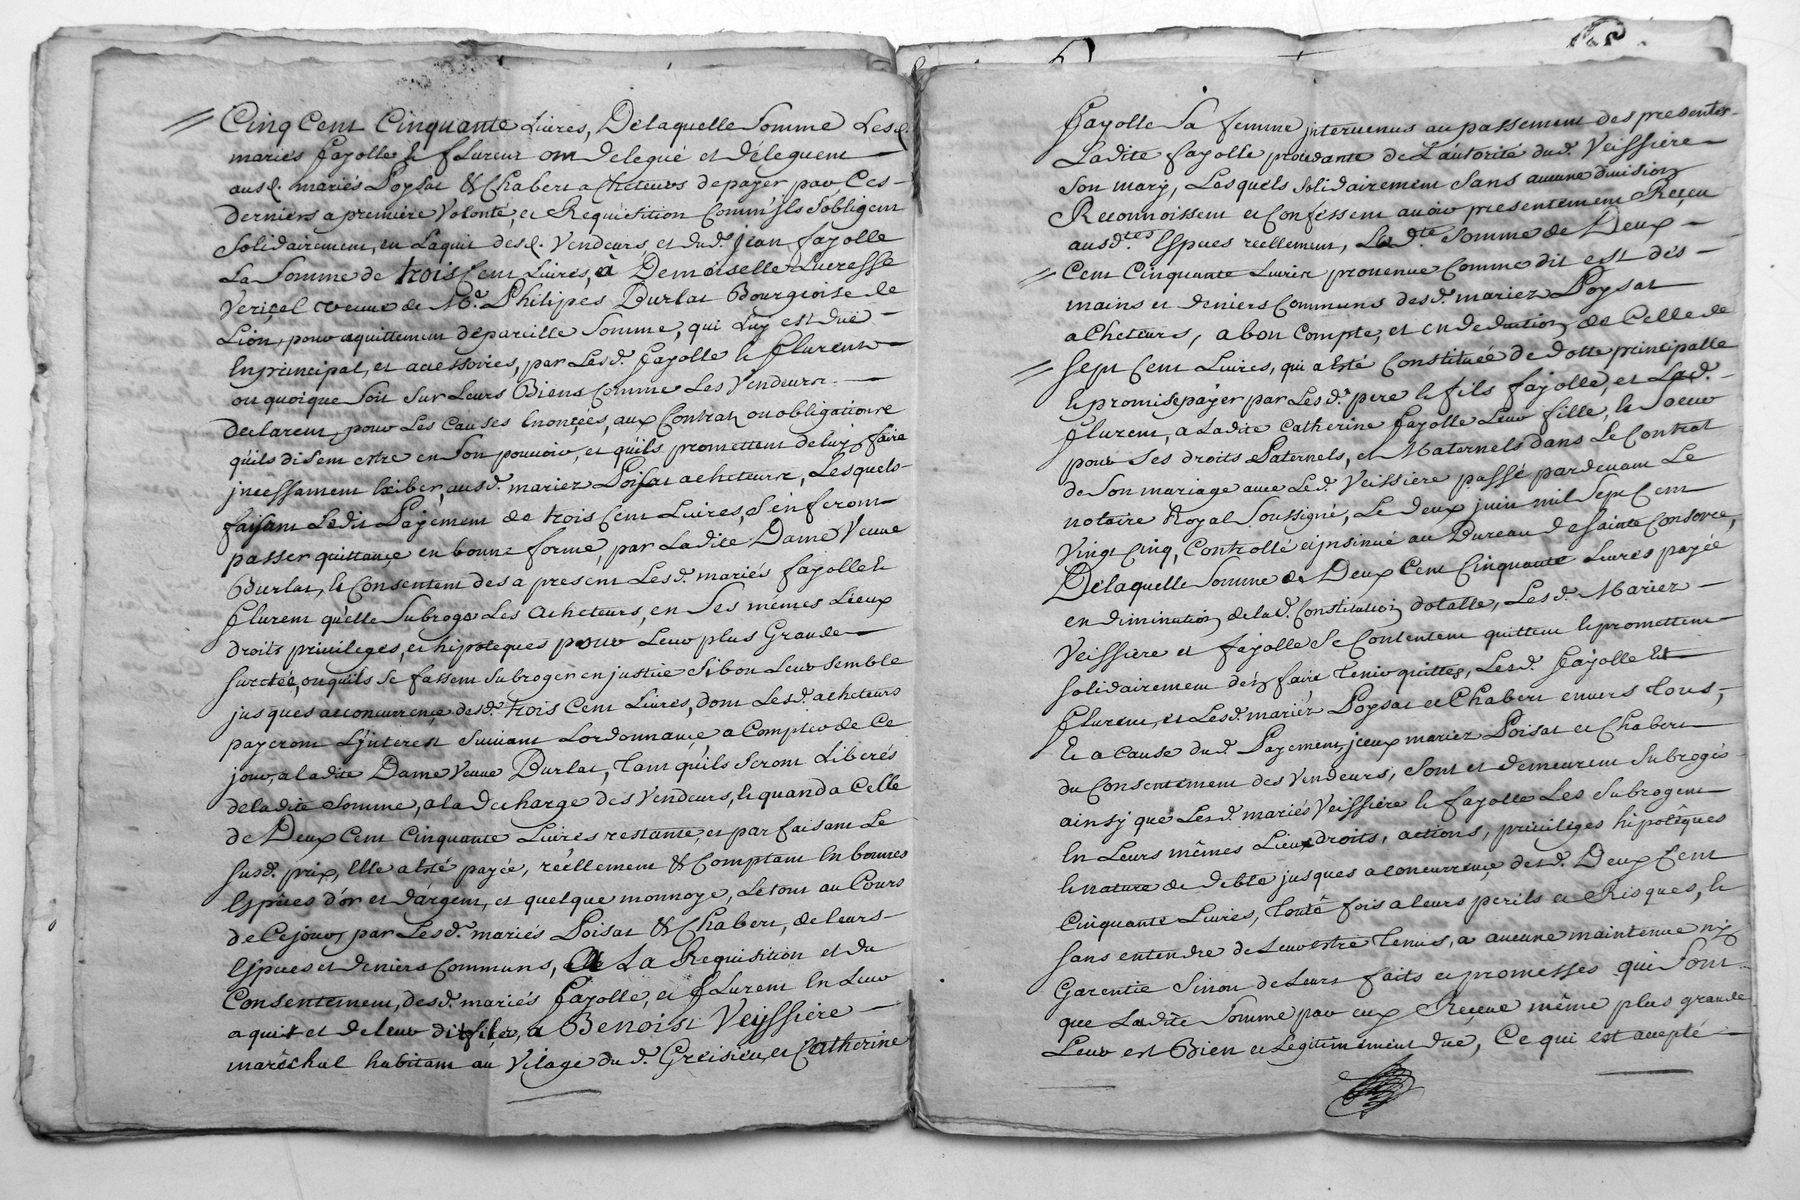 Cinq Cent Cinquante Livres, Delaquelle Somme Lesd.
mariés fayolle & flurent ont delegué et déleguent
ausd. mariés Poysat & Chabert acheteurs de payer par Ces
derniers a première Volonté, et Requisition Comm'ils s'obligent
Solidairement, en L'aquit desd. Vendeurs et dud. jean fayolle
La Somme de trois Cent Livres, à Demoiselle Lucresse
Vericel veuve de Mr. Philipes Burlat Bourgeoise de
Lion, pour aquittement de pareille Somme, qui Luy est due
En principal, et accessoires, par Lesd. fayolle & flurent
ou quoique Soit Sur Leurs Biens Comme Les Vendeurs
declarent, pour Les Causes Enoncées, aux Contrats ou obligations
qu'ils disent estre en Son pouvoir, et qu'ils promettent de luy faire
jncessament Exiber, ausd. mariez Poisat acheteurs, Lesquels
faisant Ledit Payement de trois Cent Livres, S'en feront
passer quittance en bonne forme, par Ladite Dame Veuve
Burlat, & Consentent des a present Lesd. mariés fayolle &
flurent qu'elle Subroge Les acheteurs, en Ses mêmes Lieux
droits privileges, et hipoteques pour Leur plus Grande
Sureteé, ou qu'ils Se fassent Subroger en justice Si bon Leur Semble
jusques a concurrence desd. trois Cent Livres, dont Lesd. acheteurs
payeront L'jnterest Suivant L'ordonnance a Compter de Ce
jour, a ladite Dame Veuve Burlat, tant qu'ils Seront Liberés
de ladite Somme, a la decharge des Vendeurs, & quand a Celle
de Deux Cent Cinquante Livres restante, et par faisant Le
Susd. prix, Elle a esté payée, réellement & Comptant En bonnes
Espèces d'or et d'argent, et quelque monnoye, Le tout au Cours
de Ce jour, par Lesd. mariés Poisat & Chabert, de leurs
Espèces et deniers Communs, A La Requisition et du
Consentement, desd. mariés fayolle, et flurent En Leur
aquit et de leur dit fils, a Benoist Veyssiere
maréchal habitant au Vilage du d. Greisieu, et Catherine
fayolle Sa femme jntervenus au passement des presentes
Ladite fayolle procedante de L'autorité dud. Veissiere
Son mary, Lesquels Solidairement Sans aucune division
Reconnoissent et Confessent avoir presentement Reçeu
ausdtes. Espèces réellement, Ladte. Somme de Deux
Cent Cinquante Livres provenue Comme dit est des
mains et deniers Communs desd. mariez Poysat
acheteurs, a bon Compte, et en deduction de Celle de
Sept Cent Livres, qui a Esté Constituée de dotte principalle
& promise payer par Lesd. pere & fils fayolle, et Lad.
flurent, a Ladite Catherine fayolle Leur fille, & Soeur
pour Ses droits Paternels, et Maternels dans Le Contrat
de Son mariage avec Led. Veissiere passé pardevant Le
notaire Royal Soussigné, Le deux juin mil Sept Cent
Vingt Cinq, Controllé et jnsinué au Bureau de Sainte Consorce,
Delaquelle Somme de Deux Cent Cinquante Livres payée
en diminution de la d. Constitution dotalle, Lesd. Mariez
Veissiere et fayolle Se Contentent quittent & promettent
Solidairement d'en faire tenir quittes, Lesd. fayolle Et
flurent, et Lesd. mariez Poysat et Chabert envers tous,
Et a Cause dud. Payement, jceux mariez Poisat et Chabert
du Consentement des Vendeurs, Sont et demeurent Subrogés
ainsy que Lesd. mariés Veissiere & fayolle Les Subrogent
En Leurs mêmes Lieux droits, actions, privileges hipotêques
& nature de debte jusques a concurrence desd. Deux Cent
Cinquante Livres, toute fois a leurs perils et Risques, &
Sans entendre de Leur estre tenus, a aucune maintenue ny
Garentie Sinon de Leurs faits et promesses qui Sont
que Ladite Somme par eux Reçeue même plus grande
Leur est Bien et Legitimement due, Ce qui est accepté